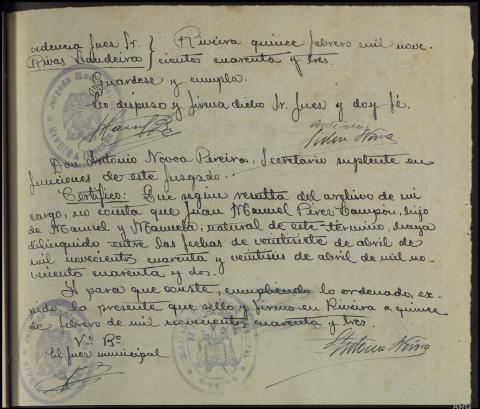 Providencia Juez Sr. } Riveira quince febrero mil nove-
Rivas Laudeira } cientos cuarenta y tres.
Guárdese y cumpla.
Lo dispuso y firma dicho Sr. Juez y doy fé.
Antonio Novoa
Don Antonio Novoa Pereiro, Secretario suplente en
funciones de este juzgado.
Certifico: Que según resulta del archivo de mi
cargo, no consta que Juan Manuel Pérez Campón, hijo
de Manuel y Manuela, natural de este término, haya
delinquido entre las fechas de veintisiete de abril de
mil novecientos cuarenta y veintiseis de abril de mil no-
vecientos cuarenta y dos.
Y para que conste, cumpliendo lo ordenado, ex-
pido la presente que sello y firmo en Riveira a quince
de febrero de mil novecientos cuarenta y tres.
Vº Bº
El juez municipal
Antonio Novoa
RIVEIRA